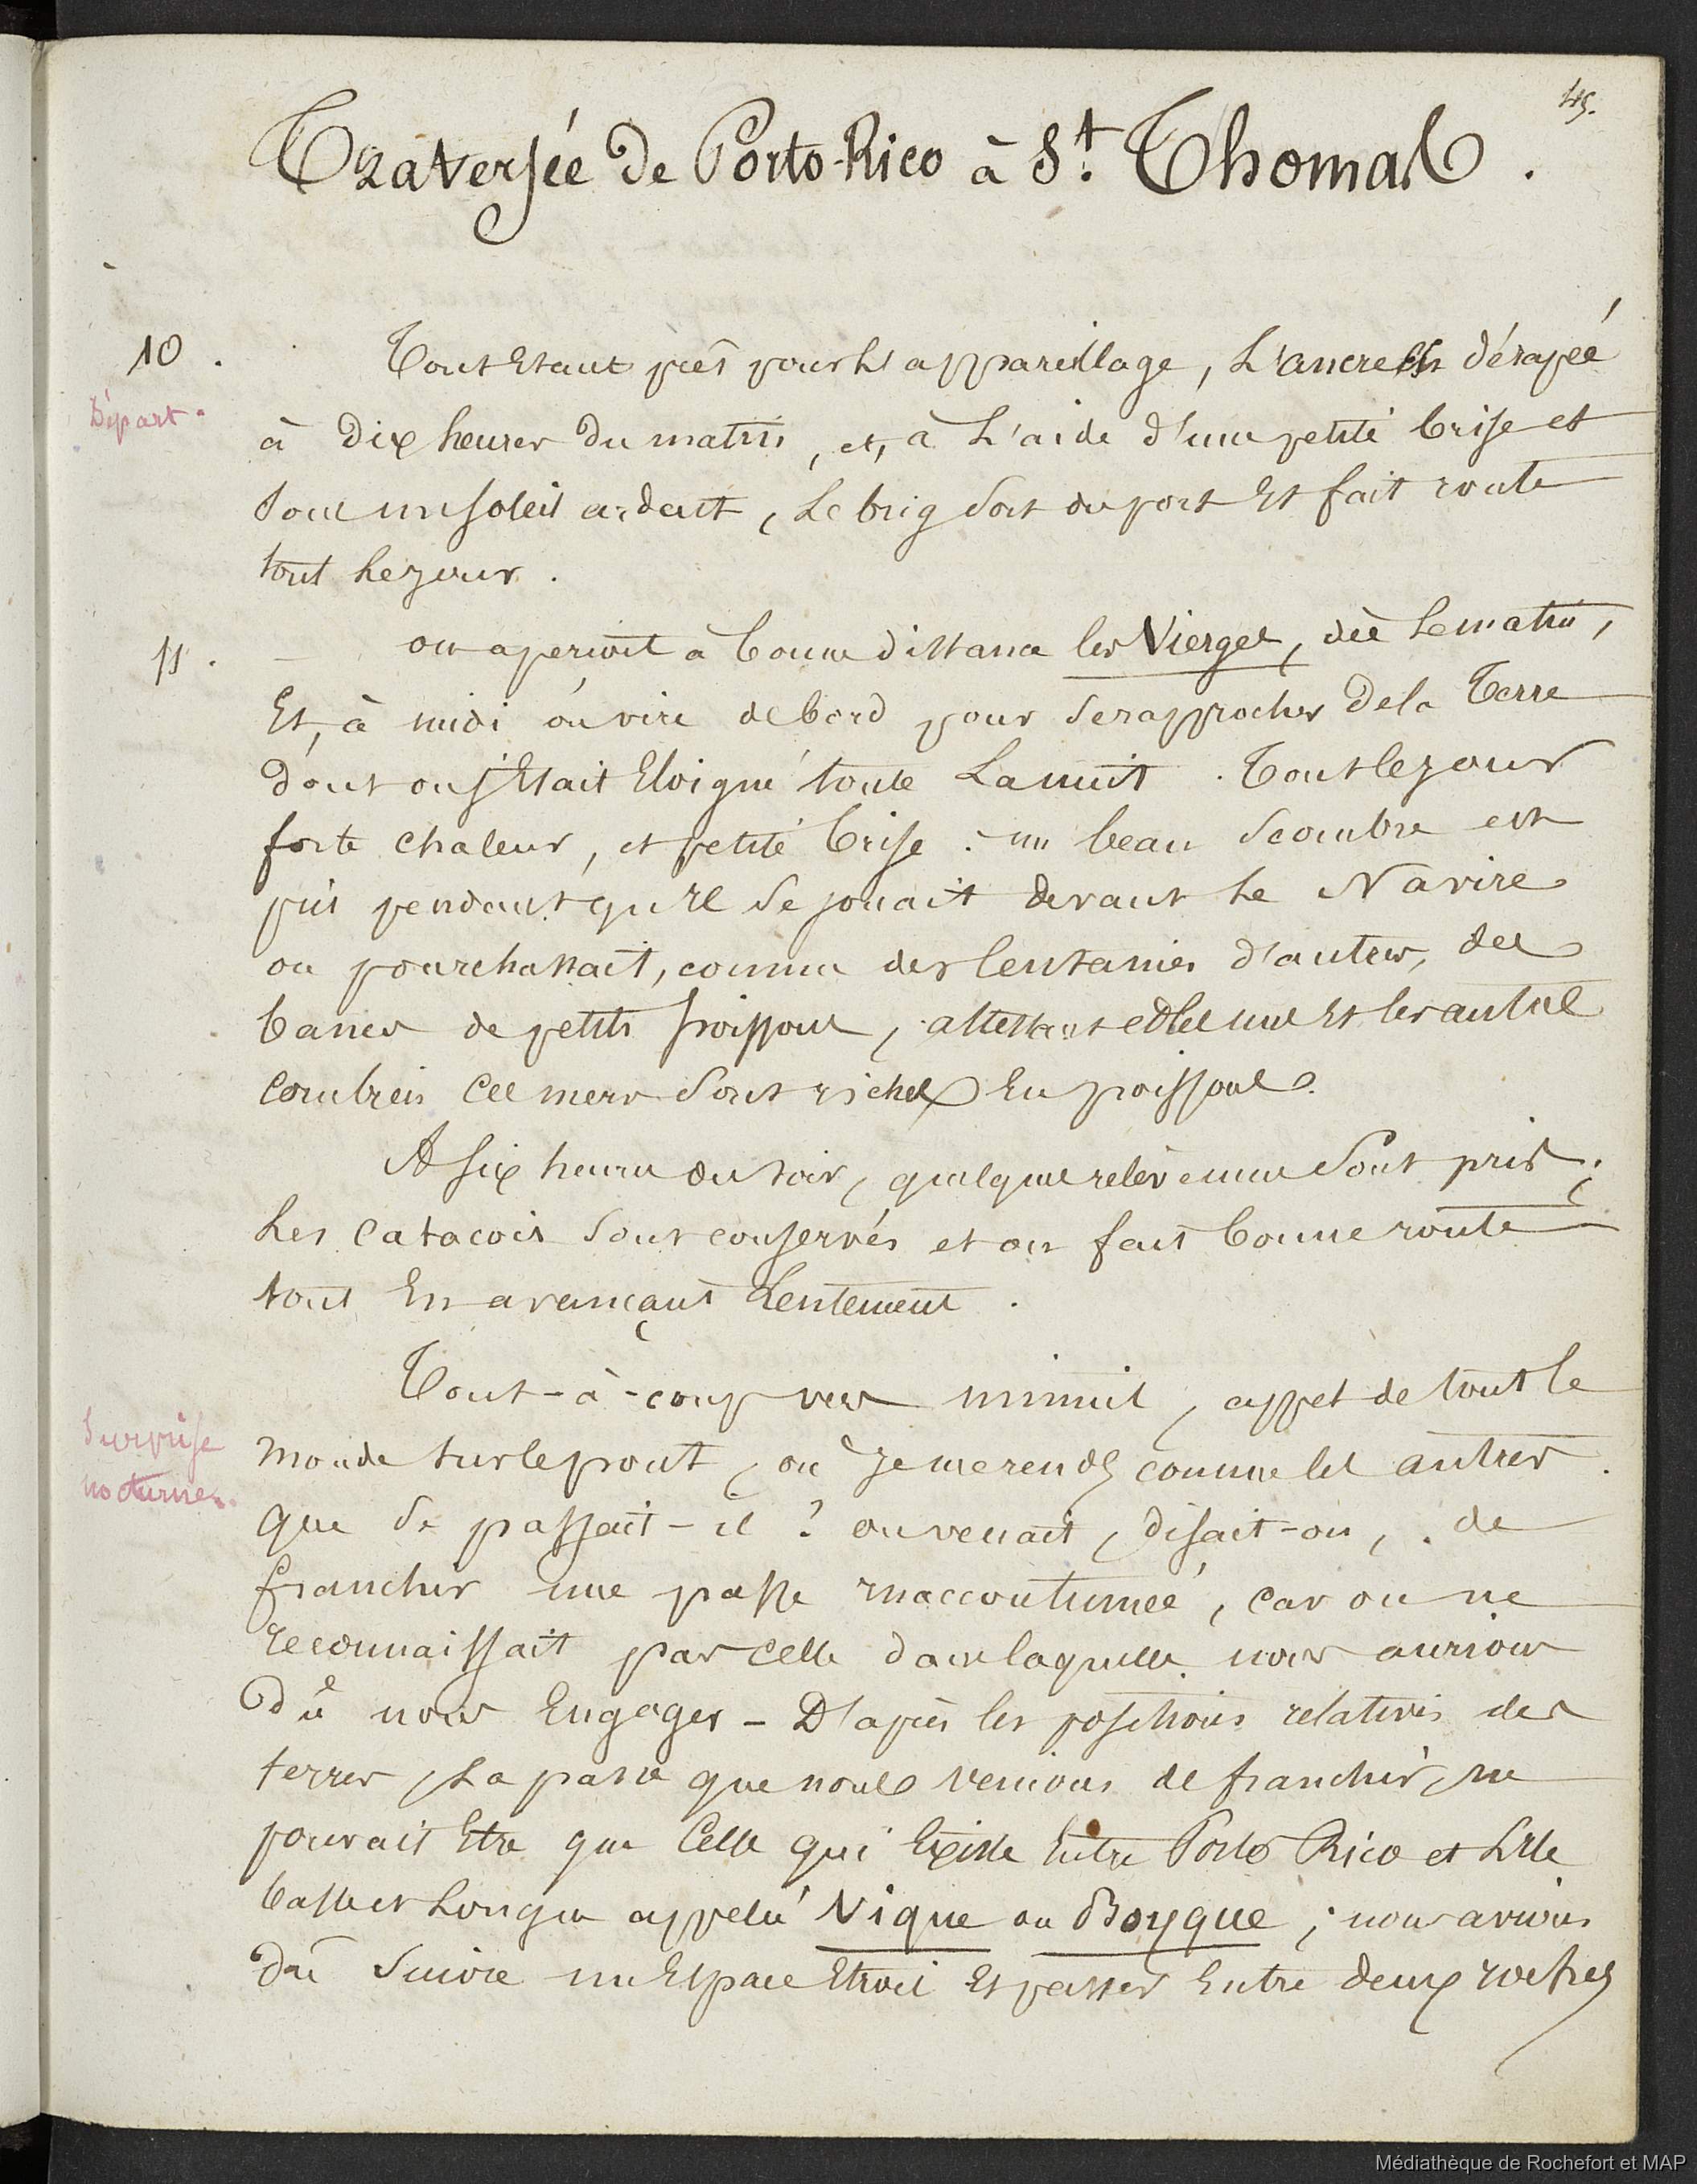 45.
Traversée de Porto-Rico à St. Thomas.
10.
Tout Etant prêt pour L'appareillage, L'ancre est dérapée
Départ.
à Dix heures du matin, et, à L'aide d'une petite brise et
sous un soleil ardent, Le brig sort du port Et fait route
tout Le jour.
11. — on aperçoit à bonne distance les Vierges, dès Le matin,
Et, à midi on vire de bord pour se rapprocher De la Terre
dont on s'Etait Eloigné toute La nuit. Tout le jour
forte chaleur, et petite brise : un beau Scombre est
pris pendant qu'il se jouait devant Le Navire
ou pourchassait, comme des centaines d'autres, des
bancs de petits poissons, attestant et les uns Et les autres
combien ces mers sont riches En poissons.
A six heures du soir, quelques relèvemens sont pris ;
Les Catacois sont conservés et on fait bonne route
tout En avançant Lentement.
Tout-à-coup vers minuit, appel de tout le
Surprise
nocturne.
monde sur le pont, où Je me rends comme les autres.
que se passait-il ? on venait, disait-on, de
franchir une passe inaccoutumée, car on ne
reconnaissait pas celle dans laquelle nous aurions
Dû nous Engager – D'après les positions relatives des
terres, La passe que nous venions de franchir, ne
pouvait Etre que Celle qui Existe Entre Porto Rico et L'Ile
basse et Longue appelée Vique ou Boyque ; nous avions
dû suivre un Espace Etroit Et passer Entre deux roches
Médiathèque de Rochefort et MAP